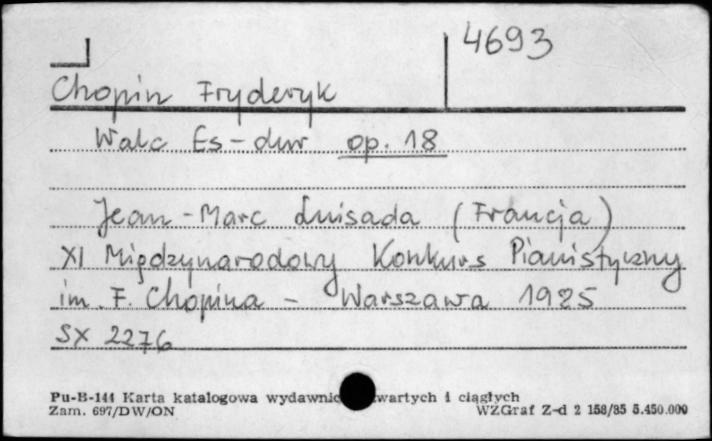 4693
Chopin Fryderyk
Walc Es-dur op. 18
Jean-Marc Luisada (Francja)
XI Międzynarodowy Konkurs Pianistyczny
im. F. Chopina - Warszawa 1985
SX 2276
Pu-B-144 Karta katalogowa wydawnic wartych i ciągłych
Zam. 697/DW/ON WZGraf Z-d 2 158/85 5.450.000